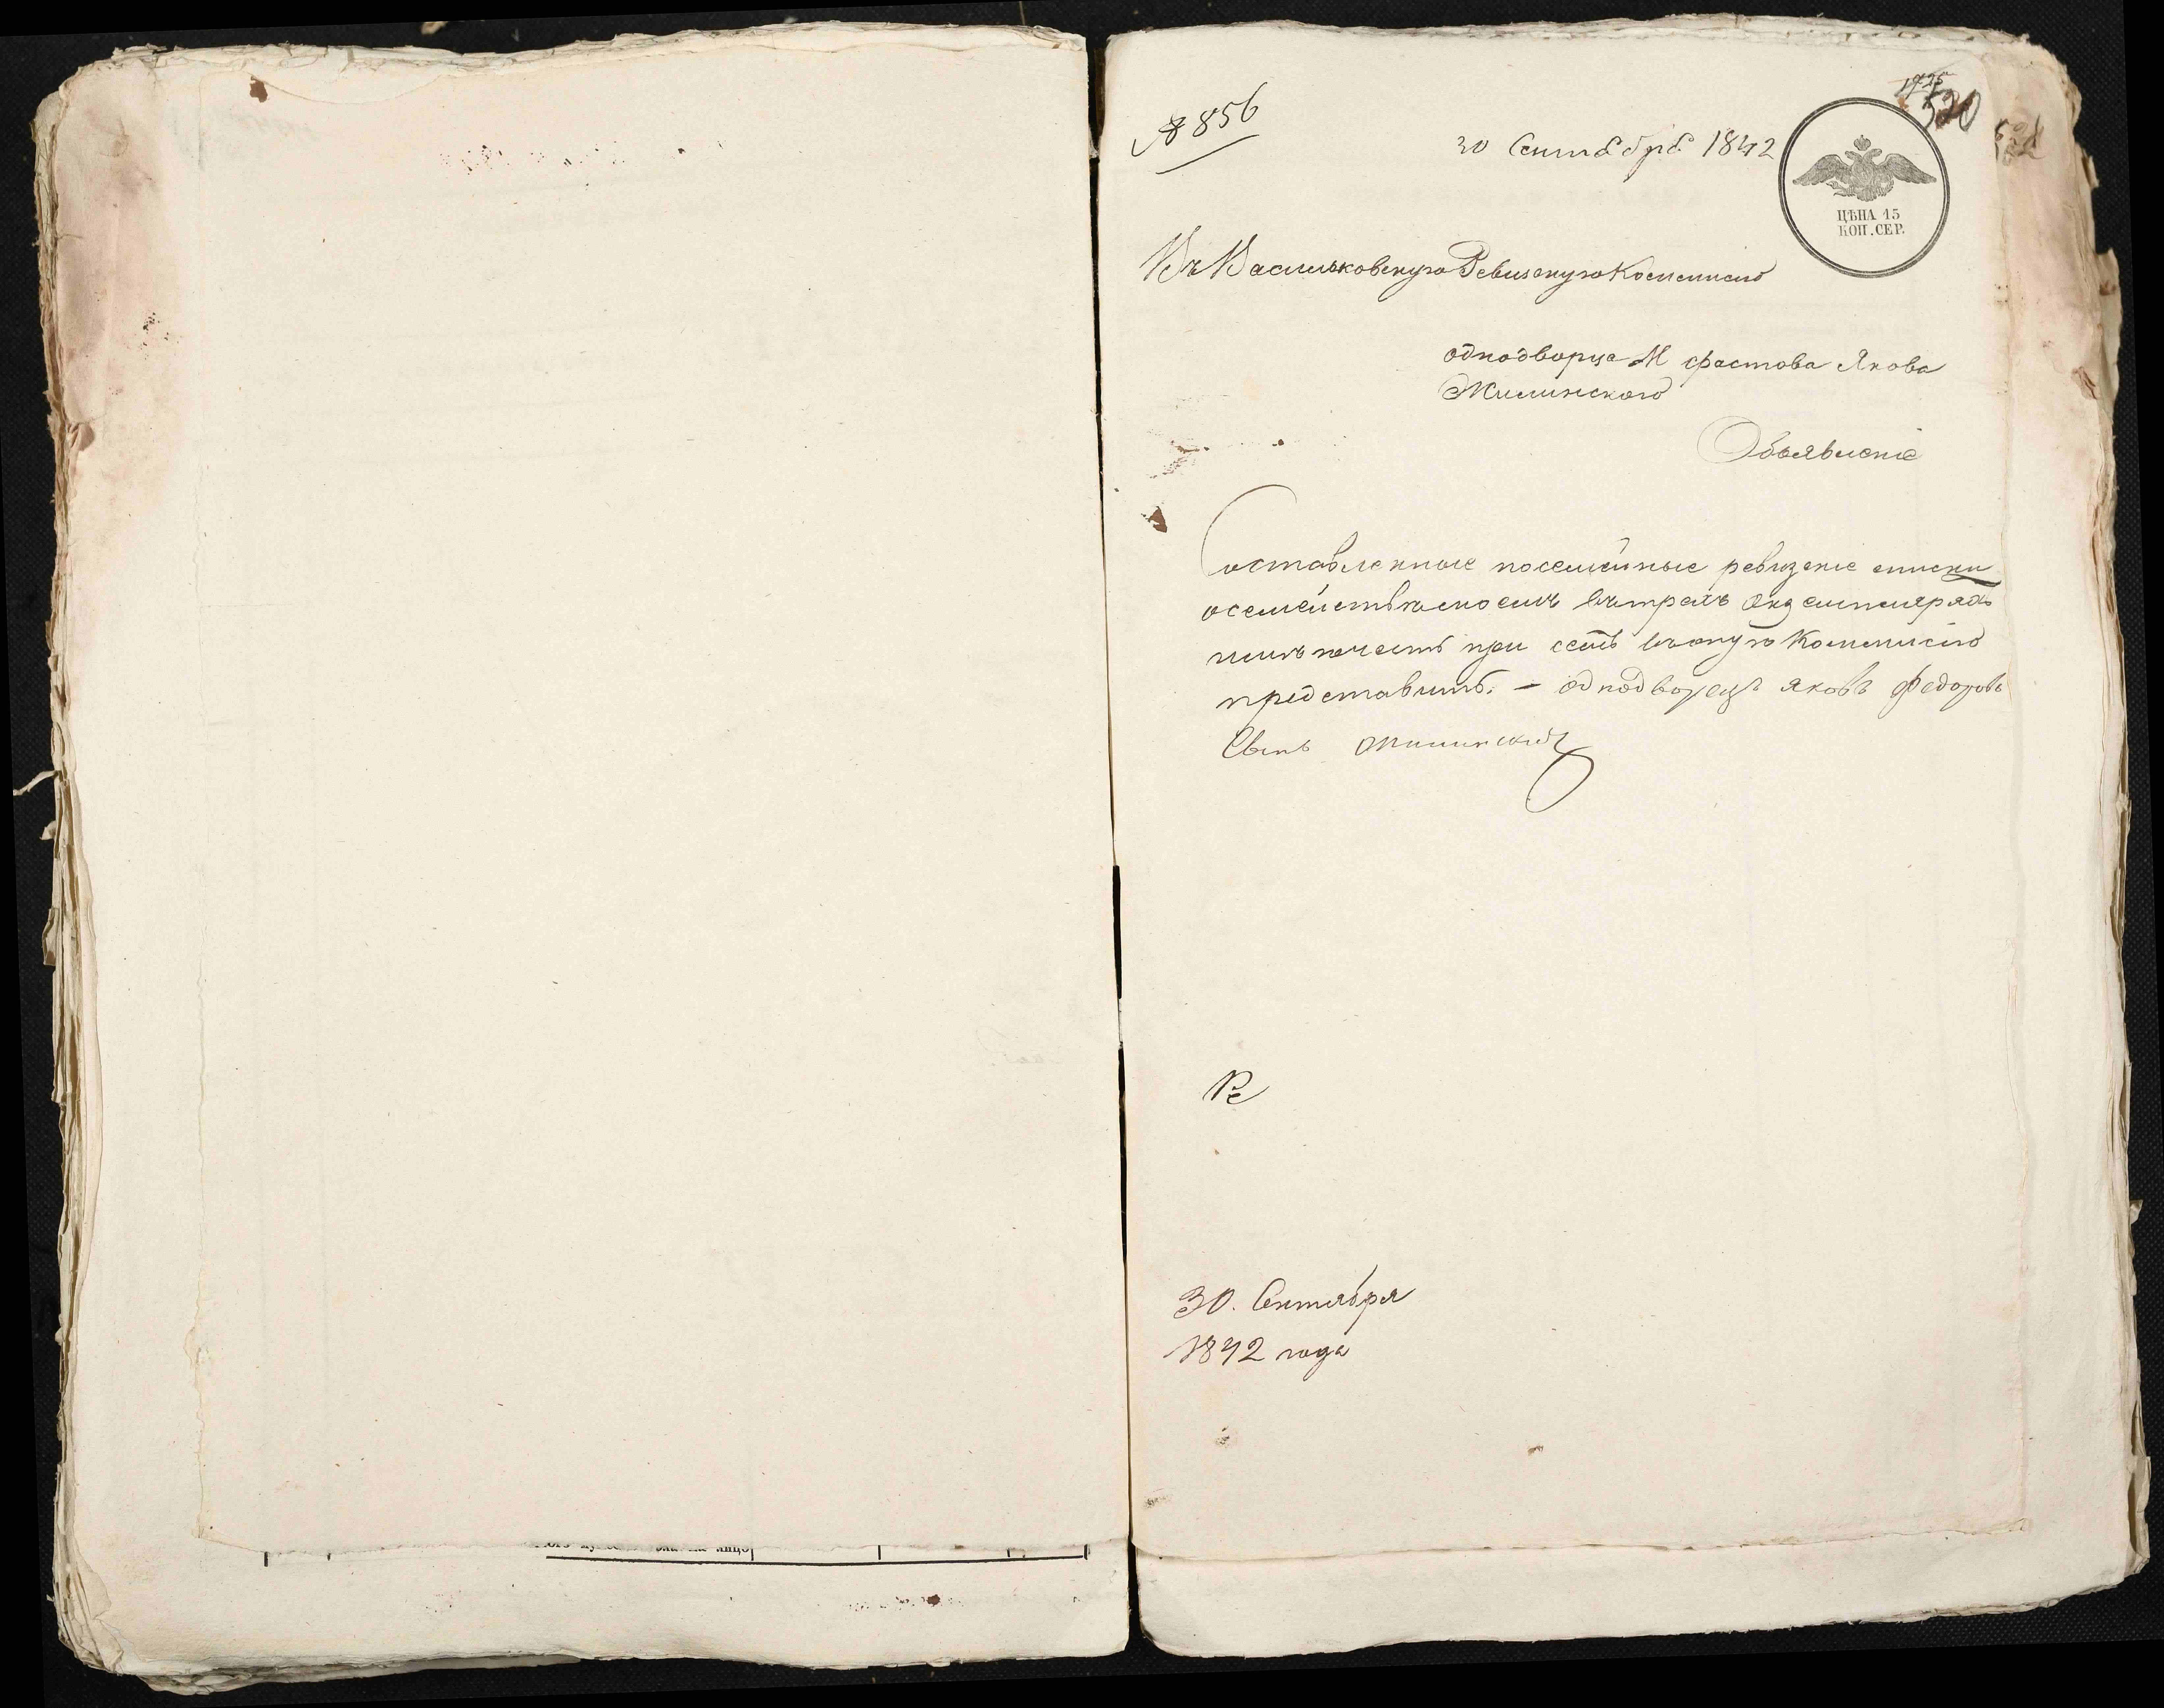 № 856
30 Сентября 1842
520
ЦѢНА 15
КОП. СЕР.
Въ Васильковскую Ревизскую Коммисию
однодворца М Фастова Якова
Жилинского
Объявленіе
Составленные посемейные ревизскіе списки
о семействе моемъ въ трехъ экземплярахъ
имѣю честь при семъ въ оную Коммисію
представить. – однодворецъ Яковъ Федоровъ
Сынъ Жилинскій
30. Сентября
1842 года